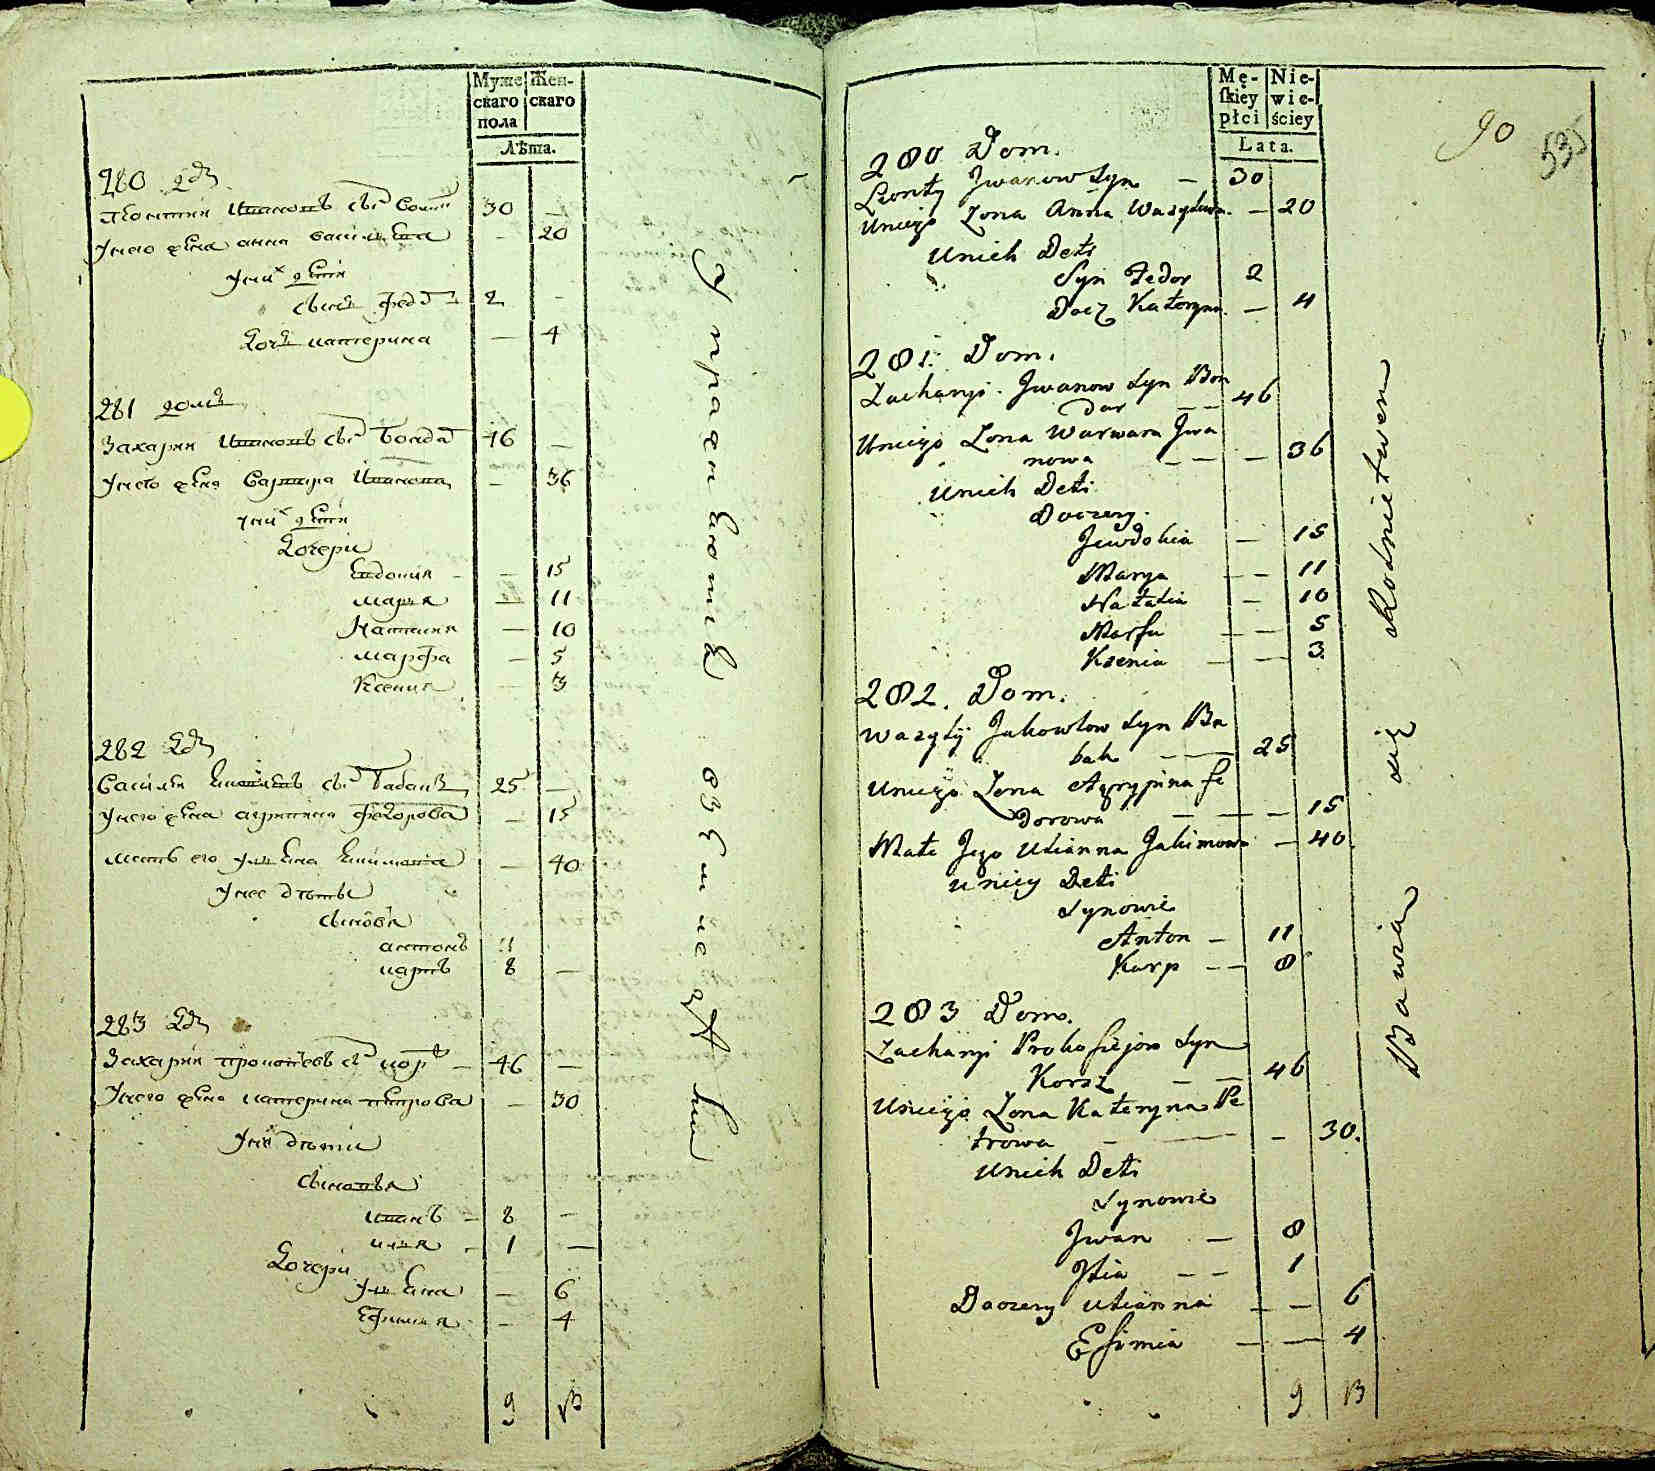 Муже
скаго
пола
Жен-
скаго
Лѣта.
280
30 —
Унего жена анна — 20
Унихъ дѣти
сынъ федоръ 2 —
дочь катерина — 4
281 домъ
Захарий Ивановъ сынъ бондаръ 46 —
Унего жена варвара Иванова — 36
Унихъ дѣти
дочери
Евдокия — 15
марья — 11
Наталия — 10
марфа — 5
Ксения — 3
282
василей яковлевъ сынъ бабакъ 25 —
Унего жена агрипина федорова — 15
мать его ульяна — 40
Унее дѣти
сыновья
антонъ 11
карпъ 8 —
283
Захарий прокофѣевъ сынъ коржъ 46 —
Унего жена катерина петрова — 30
Унихъ дѣти
сыновья
иванъ — 8 —
илья — 1 —
дочери
ульяна — 6
Ефимия — 4
9 13
Mę-
ſkiéy
płci
Nie-
wie-
ściey
Lata.
90
535
280 Dom.
Leonty Jwanow Syn — 30
Uniego Zona Anna Wasylewa. — 20
Unich Deti
Syn Fedor 2
Docz Kateryna. — 4
281. Dom.
Zacharyi Jwanow Syn Bon
dar — — 46
Uniego Zona Warwara Jwa
nowa — — — 36
Unich Deti
Doczery.
Jewdokia — 15
Marya — — 11
Natalia — 10
Marfa — — 5
Ksenia — — 3.
282. Dom.
Wasyly Jakowlow Syn Ba
bak — — 25
Uniego Zona Agrypina Fe
dorowa — — — 15
Mati Jego Ulianna Jakimowa — 40.
Uniey Deti
Synowie
Anton — 11
Karp — — 8
283 Dom.
Zacharyi Prokofiejow Syn
Korsz — — 46
Uniego Zona Kateryna Pe
trowa — — — 30.
Unich Deti
Synowie
Jwan — 8
Jlia — — 1
Doczery Ulianna — — 6
Efimia — — 4
9 13